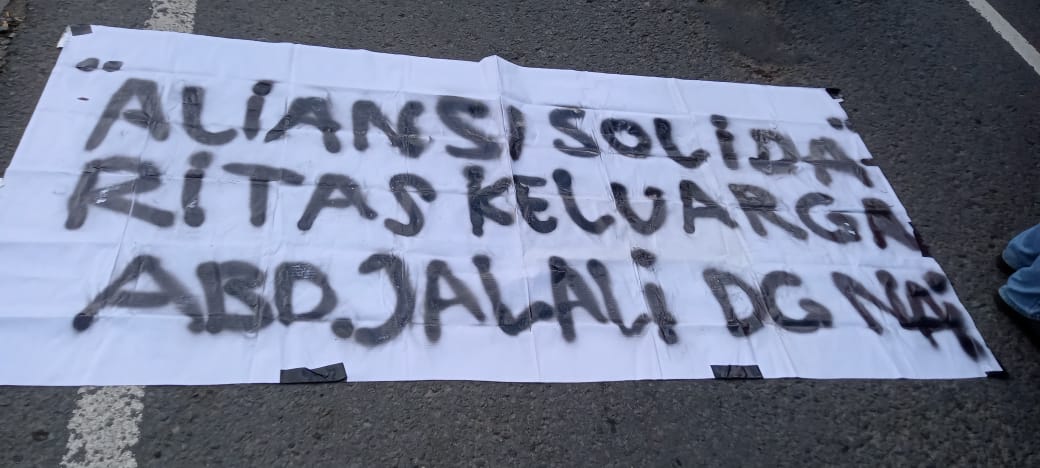 ALiANSI SOLiDA
RiTAS KELUARGA
ABD. JALALi DG NAi